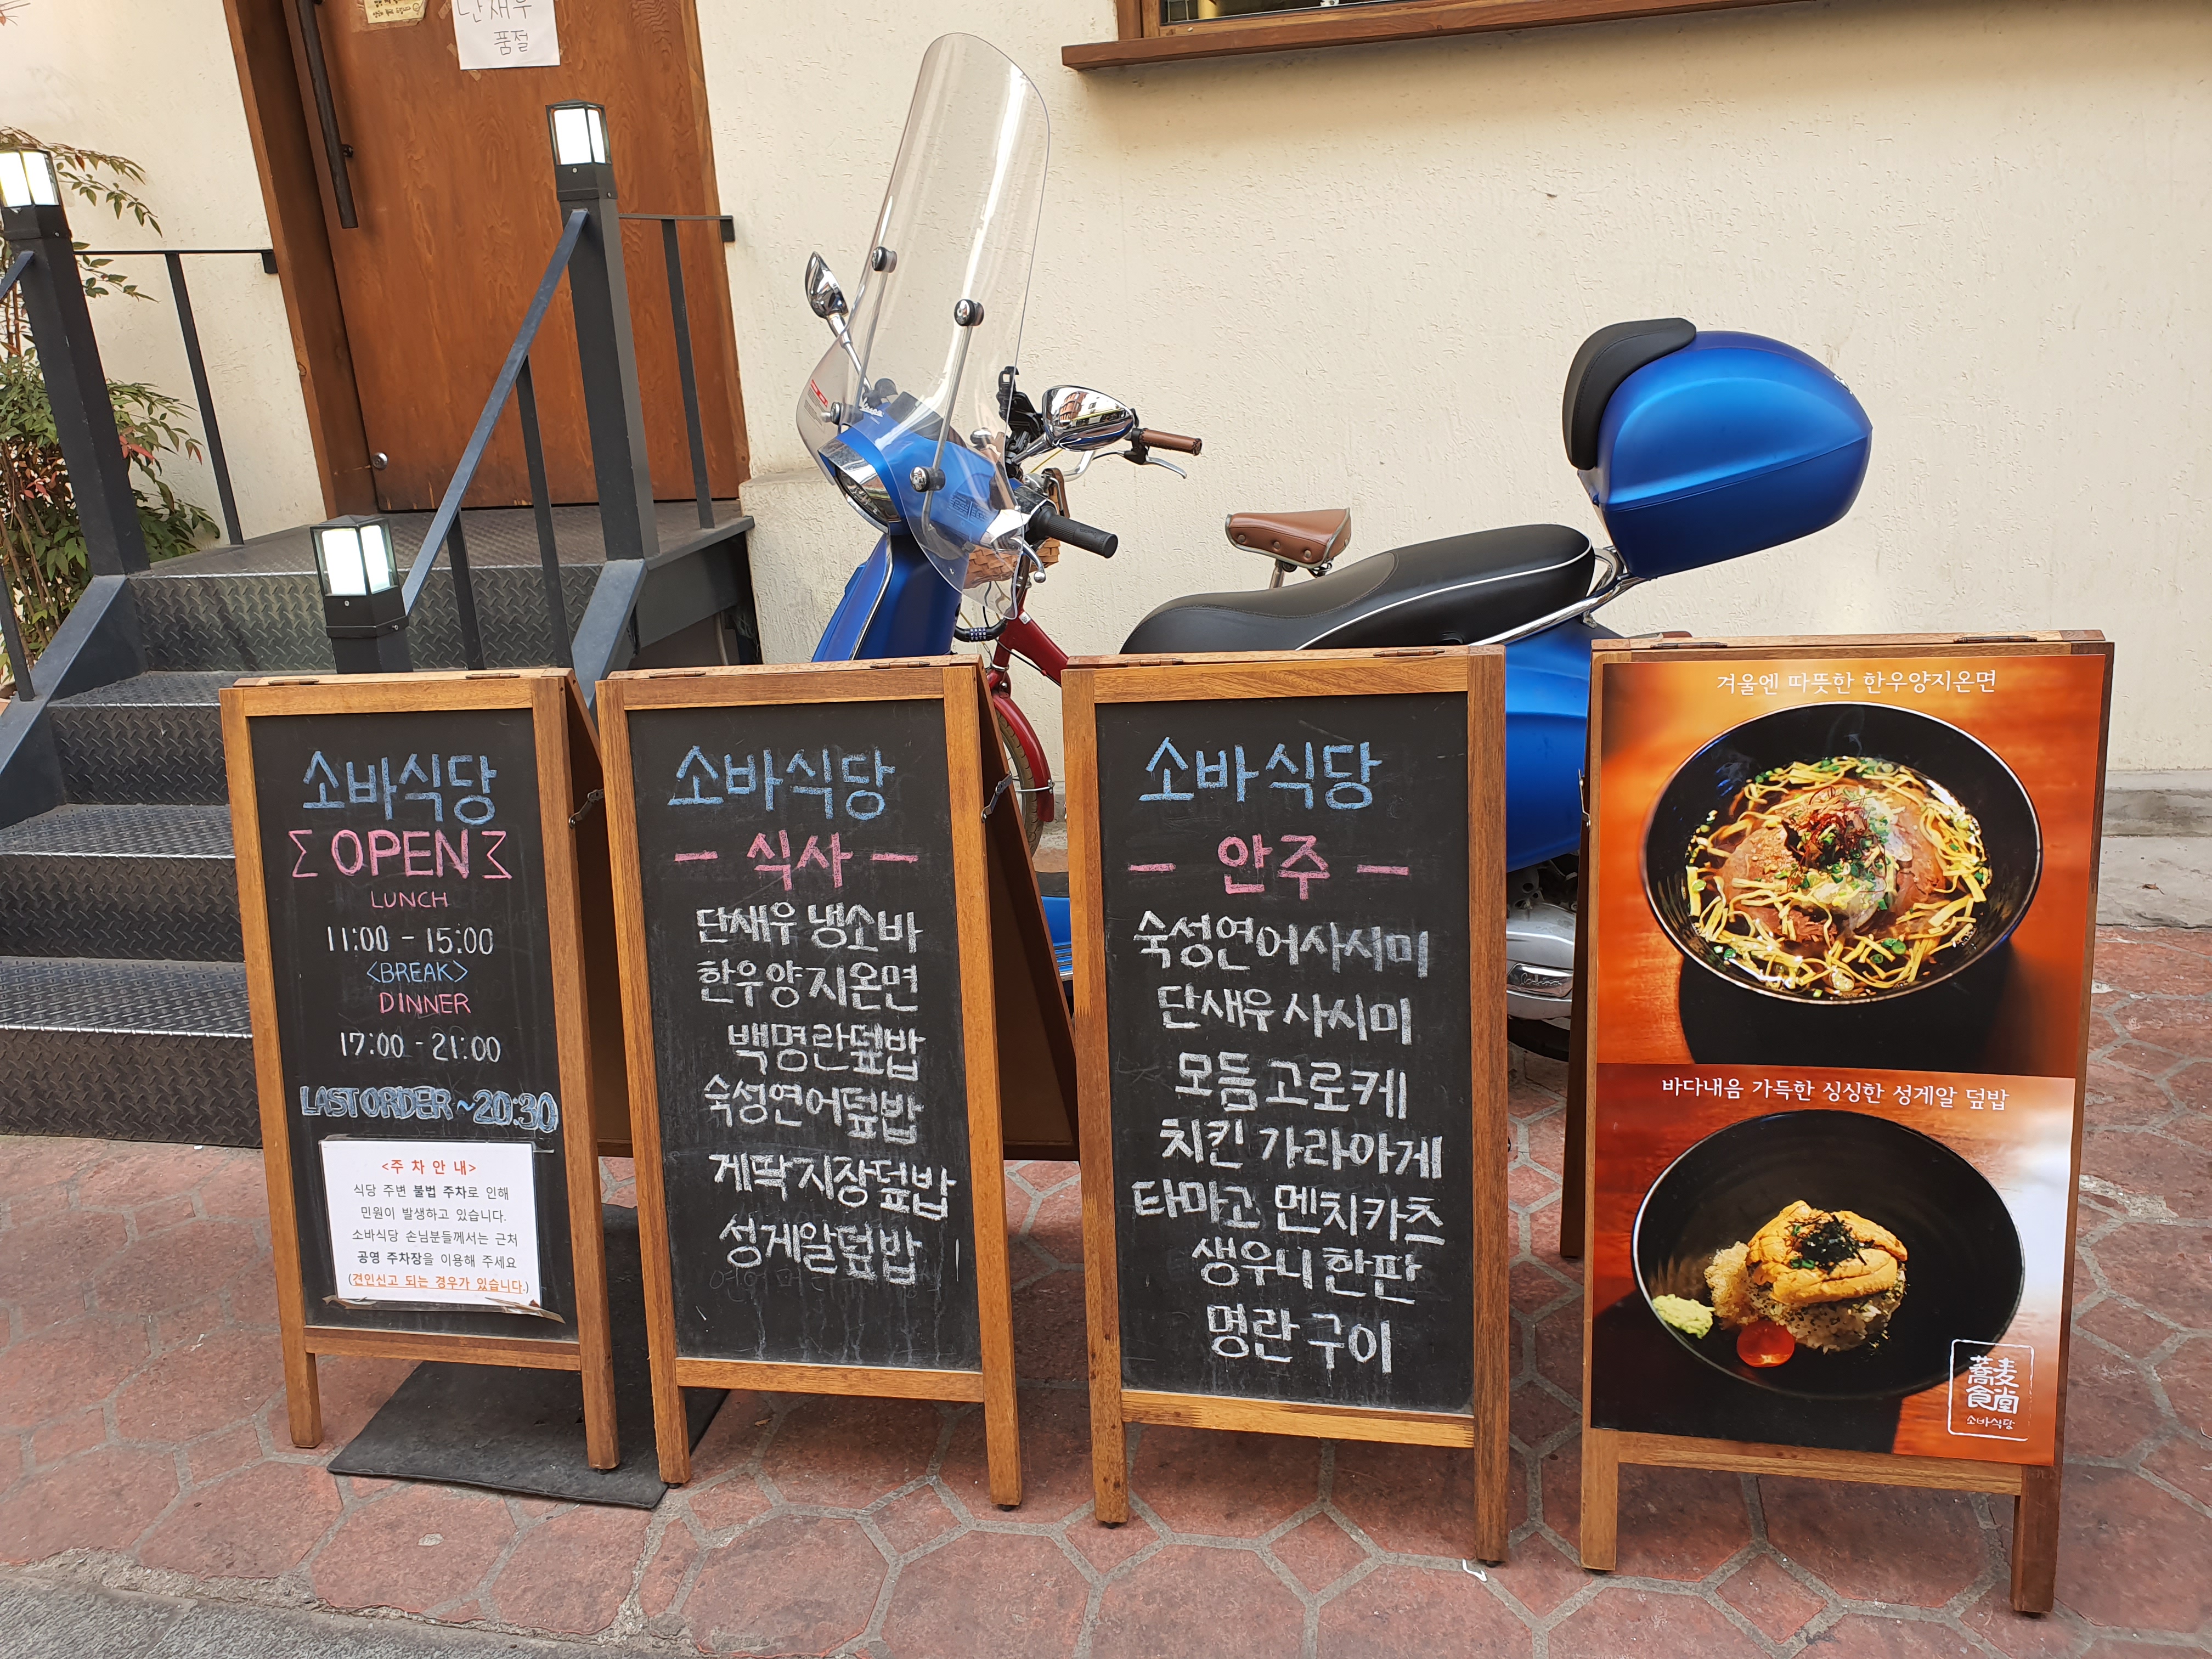 단새우
품절
소바식당
OPEN
LUNCH
11:00 - 15:00
<BREAK>
DINNER
17:00 - 21:00
LAST ORDER ~ 20:30
<주 차 안 내>
식당 주변 불법 주차로 인해
민원이 발생하고 있습니다.
소바식당 손님분들께서는 근처
공영 주차장을 이용해 주세요
(견인신고 되는 경우가 있습니다.)
소바식당
- 식사 -
단새우 냉소바
한우양지온면
백명란덮밥
숙성연어덮밥
게딱지장덮밥
성게알덮밥
소바식당
- 안주 -
숙성연어사시미
단새우 사시미
모듬 고로케
치킨 가라아게
타마고 멘치카츠
생우니 한판
명란 구이
겨울엔 따뜻한 한우양지온면
바다내음 가득한 싱싱한 성게알 덮밥
蕎麦
食堂
소바식당